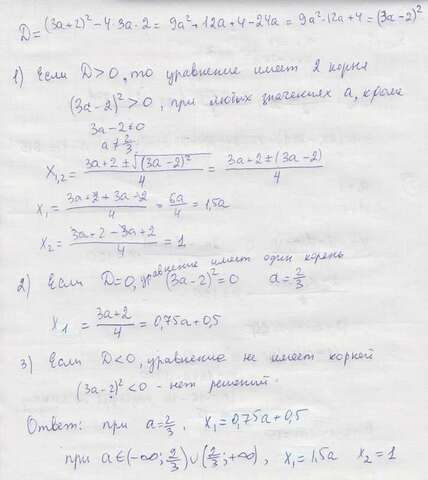 D=(3a+2)²-4·3a·2 = 9a²+12a+4-24a = 9a²-12a+4 = (3a-2)²
1) Если D>0, то уравнение имеет 2 корня
(3a-2)²>0, при любых значениях a, кроме
3a-2≠0
a≠2/3
x₁,₂ = (3a+2±√(3a-2)²)/4 = (3a+2±(3a-2))/4
x₁ = (3a+2+3a-2)/4 = 6a/4 = 1,5a
x₂ = (3a+2-3a+2)/4 = 1
2) Если D=0, уравнение имеет один корень (3a-2)²=0 a=2/3
x₁ = (3a+2)/4 = 0,75a+0,5
3) Если D<0, уравнение не имеет корней
(3a-2)²<0 - нет решений.
Ответ: при a=2/3, x₁=0,75a+0,5
при a∈(-∞;2/3)∪(2/3;+∞), x₁=1,5a x₂=1